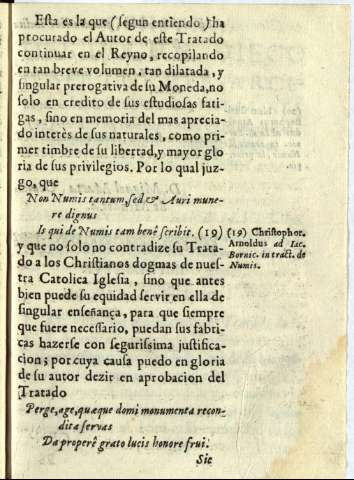 Esta es la que (segun entiendo) ha
procurado el Autor de este Tratado
continuar en el Reyno, recopilando
en tan breve volumen, tan dilatada, y
singular prerogativa de su Moneda, no
solo en credito de sus estudiosas fati-
gas, sino en memoria del mas aprecia-
do interès de sus naturales, como pri-
mer timbre de su libertad, y mayor glo-
ria de sus privilegios. Por lo qual juz-
go, que
Non Numis tantum, sed, & Auri mune-
re dignus
Is qui de Numis tam benè scribit. (19)
y que no solo no contradize su Trata-
do a los Christianos dogmas de nues-
tra Catolica Iglesia, sino que antes
bien puede su equidad servir en ella de
singular enseñança, para que siempre
que fuere necessario, puedan sus fabri-
cas hazerse con segurissima justifica-
cion; por cuya causa puedo en gloria
de su autor dezir en aprobacion del
Tratado
Perge, age, quæque domi monumenta recon-
dita servas
Da properè grato lucis honore frui.
Sic
(19) Christophor.
Arnoldus ad Iac.
Bornic. in tract. de
Numis.